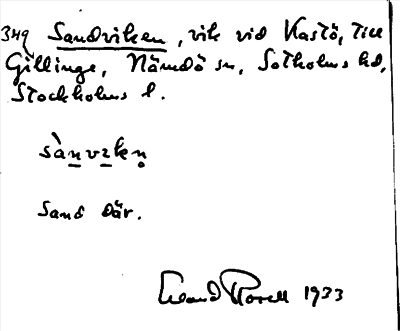 349 Sandviken, vik vid Kastö, till
Gillinge, Nämdö sn, Sotholms hd,
Stockholms l.
sànviken
Sand där.
1933